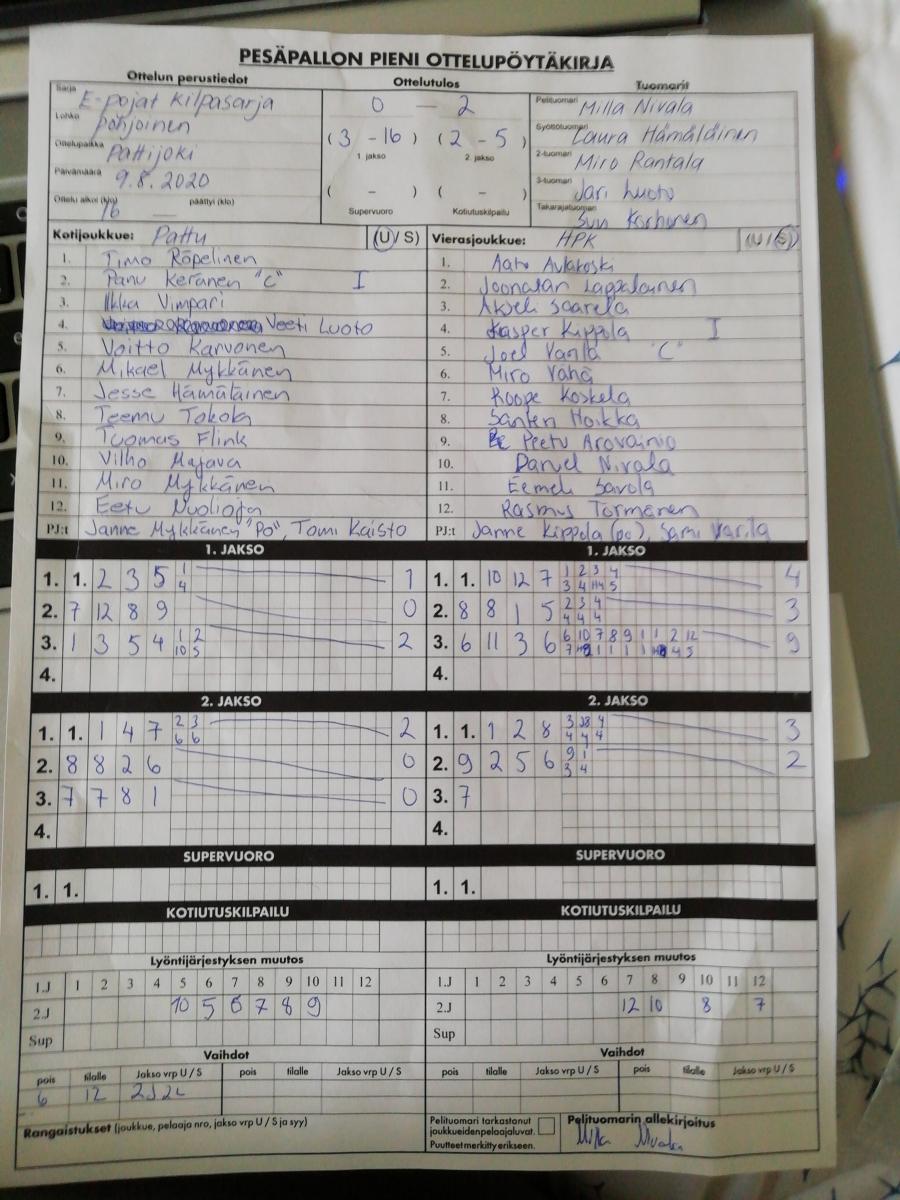 PESÄPALLON PIENI OTTELUPÖYTÄKIRJA
Ottelun perustiedot Ottelutulos Tuomarit
Sarja E-pojat kilpasarja 0 — 2 Pelituomari Milla Nivala
Lohko pohjoinen (3 - 16) (2 - 5) Syöttötuomari Laura Hämäläinen
Ottelupaikka Pattijoki 1. jakso 2. jakso 2-tuomari Miro Rantala
Päivämäärä 9.8.2020 ( - ) ( - ) 3-tuomari Jari Luoto
Ottelu alkoi (klo) 16 — päättyi (klo) Supervuoro Kotiutuskilpailu Takarajatuomari Korhonen
Kotijoukkue: Pattu (U/S) Vierasjoukkue: HPK (U/S)
1. Timo Röpelinen 1.
2. Panu Keränen "C" I 2. Joonatan Lappalainen
3. Ilkka Vimpari 3. Akseli Saarela
4. Veeti Luoto 4. Kasper Kippola I
5. Voitto Karvonen 5. Joel "C"
6. Mikael Mykkänen 6. Miro Vähä
7. Jesse Hämäläinen 7. Roope Koskela
8. Teemu Tokola 8. Santeri Hoikka
9. Tuomas Flink 9. Peetu Arovainio
10. Vilho Majava 10. Daniel Nivala
11. Miro Mykkänen 11. Eemeli Savola
12. Eetu Nuolioja 12. Rasmus Tormanen
PJ:t Janne Mykkänen "PO", Tomi Kaisto PJ:t Janne Kippola (po), Sami
1. JAKSO 1. JAKSO
1. 1. 2 3 5 1 4 1 1. 1. 10 12 7 1 2 3 4 3 4 5 4
2. 7 12 8 9 0 2. 8 8 1 5 2 3 4 4 4 4 3
3. 1 3 5 4 1 2 10 5 2 3. 6 11 3 6 6 10 7 8 9 1 1 2 12 9
4. 4.
2. JAKSO 2. JAKSO
1. 1. 1 4 7 2 3 6 6 2 1. 1. 1 2 8 3 4 4 4 4 3
2. 8 8 2 6 0 2. 9 2 5 6 9 1 3 4 2
3. 7 7 8 1 0 3. 7
4. 4.
SUPERVUORO SUPERVUORO
1. 1. 1. 1.
KOTIUTUSKILPAILU KOTIUTUSKILPAILU
Lyöntijärjestyksen muutos Lyöntijärjestyksen muutos
1.J 1 2 3 4 5 6 7 8 9 10 11 12 1.J 1 2 3 4 5 6 7 8 9 10 11 12
2.J 10 5 6 7 8 9 2.J 12 10 8 7
Sup Sup
Vaihdot Vaihdot
pois tilalle Jakso vrp U / S pois tilalle Jakso vrp U / S pois tilalle Jakso vrp U / S pois tilalle Jakso vrp U / S
6 12
Rangaistukset (joukkue, pelaaja nro, jakso vrp U / S ja syy) Pelituomari tarkastanut Pelituomarin allekirjoitus
joukkueidenpelaajaluvat.
Puutteetmerkittyerikseen. Milla Nivala